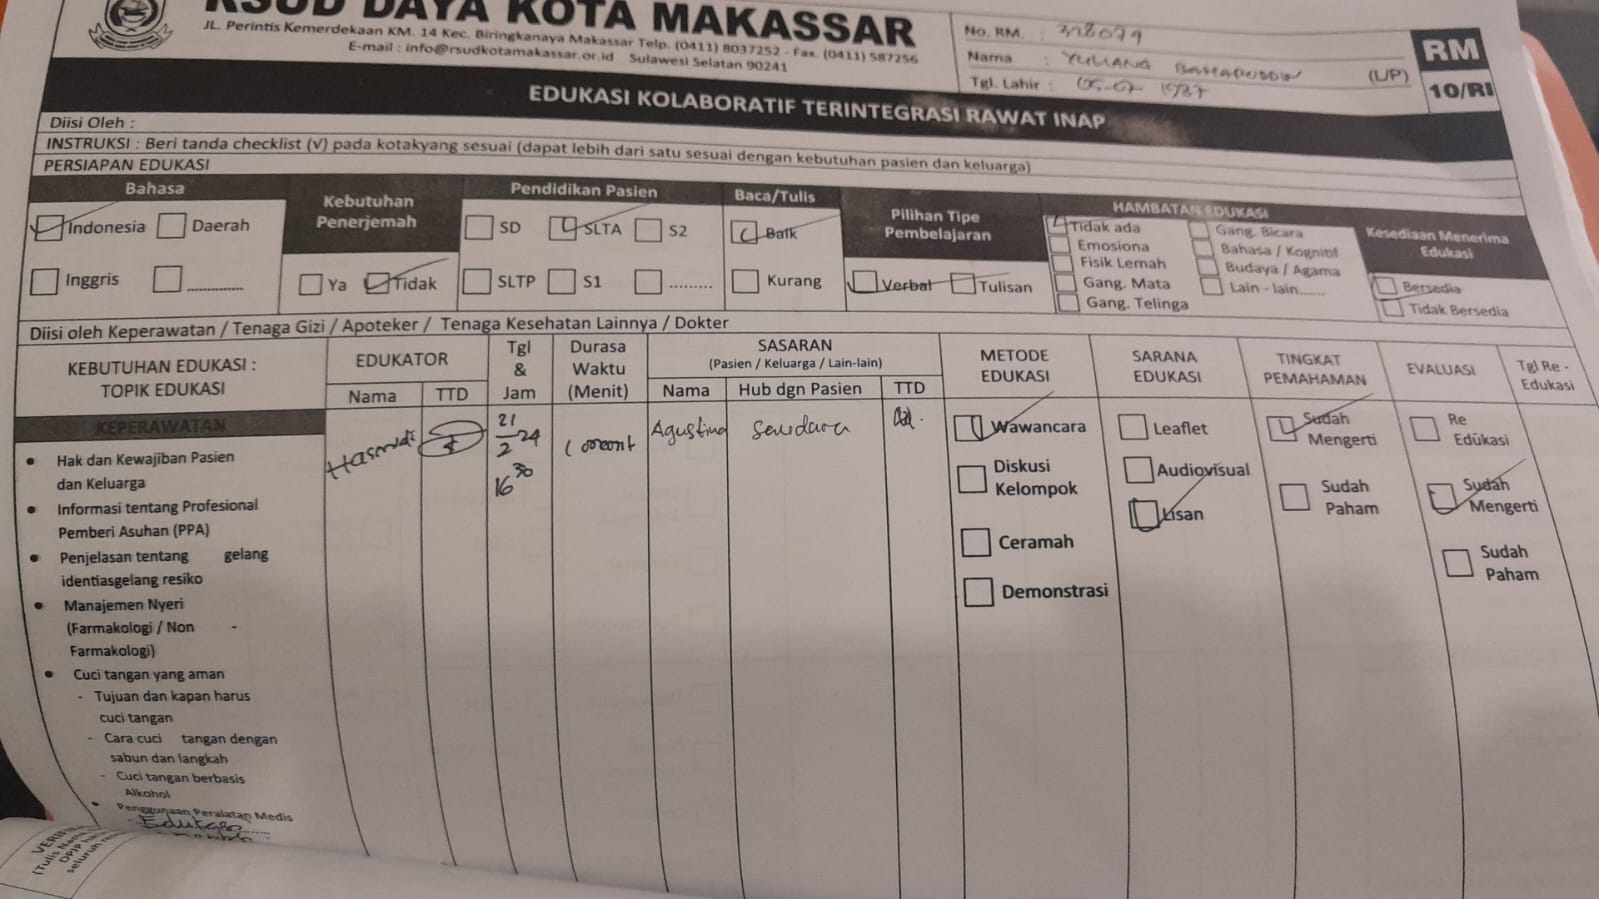 RSUD DAYA KOTA MAKASSAR
JL. Perintis Kemerdekaan KM. 14 Kec. Biringkanaya Makassar Telp. (0411) 8037252 - Fax. (0411) 587256
E-mail : info@rsudkotamakassar.or.id Sulawesi Selatan 90241
No. RM. : 318079
Nama : YULIANA
Tgl. Lahir : 05-07 1987
(L/P)
RM
10/RI
EDUKASI KOLABORATIF TERINTEGRASI RAWAT INAP
Diisi Oleh :
INSTRUKSI : Beri tanda checklist (√) pada kotakyang sesuai (dapat lebih dari satu sesuai dengan kebutuhan pasien dan keluarga)
PERSIAPAN EDUKASI
Bahasa
Indonesia Daerah
Inggris ..............
Kebutuhan
Penerjemah
Ya Tidak
Pendidikan Pasien
SD SLTA S2
SLTP S1 .........
Baca/Tulis
Baik
Kurang
Pilihan Tipe
Pembelajaran
Verbal Tulisan
HAMBATAN EDUKASI
Tidak ada Gang. Bicara
Emosiona Bahasa / Kognitif
Fisik Lemah Budaya / Agama
Gang. Mata Lain - lain......
Gang. Telinga
Kesediaan Menerima
Edukasi
Bersedia
Tidak Bersedia
Diisi oleh Keperawatan / Tenaga Gizi / Apoteker / Tenaga Kesehatan Lainnya / Dokter
KEBUTUHAN EDUKASI :
TOPIK EDUKASI
EDUKATOR
Nama TTD
Tgl
&
Jam
Durasa
Waktu
(Menit)
SASARAN
(Pasien / Keluarga / Lain-lain)
Nama Hub dgn Pasien TTD
METODE
EDUKASI
SARANA
EDUKASI
TINGKAT
PEMAHAMAN
EVALUASI
Tgl Re -
Edukasi
KEPERAWATAN
• Hak dan Kewajiban Pasien
dan Keluarga
• Informasi tentang Profesional
Pemberi Asuhan (PPA)
• Penjelasan tentang gelang
identiasgelang resiko
• Manajemen Nyeri
(Farmakologi / Non -
Farmakologi)
• Cuci tangan yang aman
- Tujuan dan kapan harus
cuci tangan
- Cara cuci tangan dengan
sabun dan langkah
- Cuci tangan berbasis
Alkohol
• Penggunaan Peralatan Medis
- Edukasi
21
2 24
16 30
Agustina
Saudara
Wawancara
Diskusi
Kelompok
Ceramah
Demonstrasi
Leaflet
Audiovisual
Lisan
Sudah
Mengerti
Sudah
Paham
Re
Edukasi
Sudah
Mengerti
Sudah
Paham